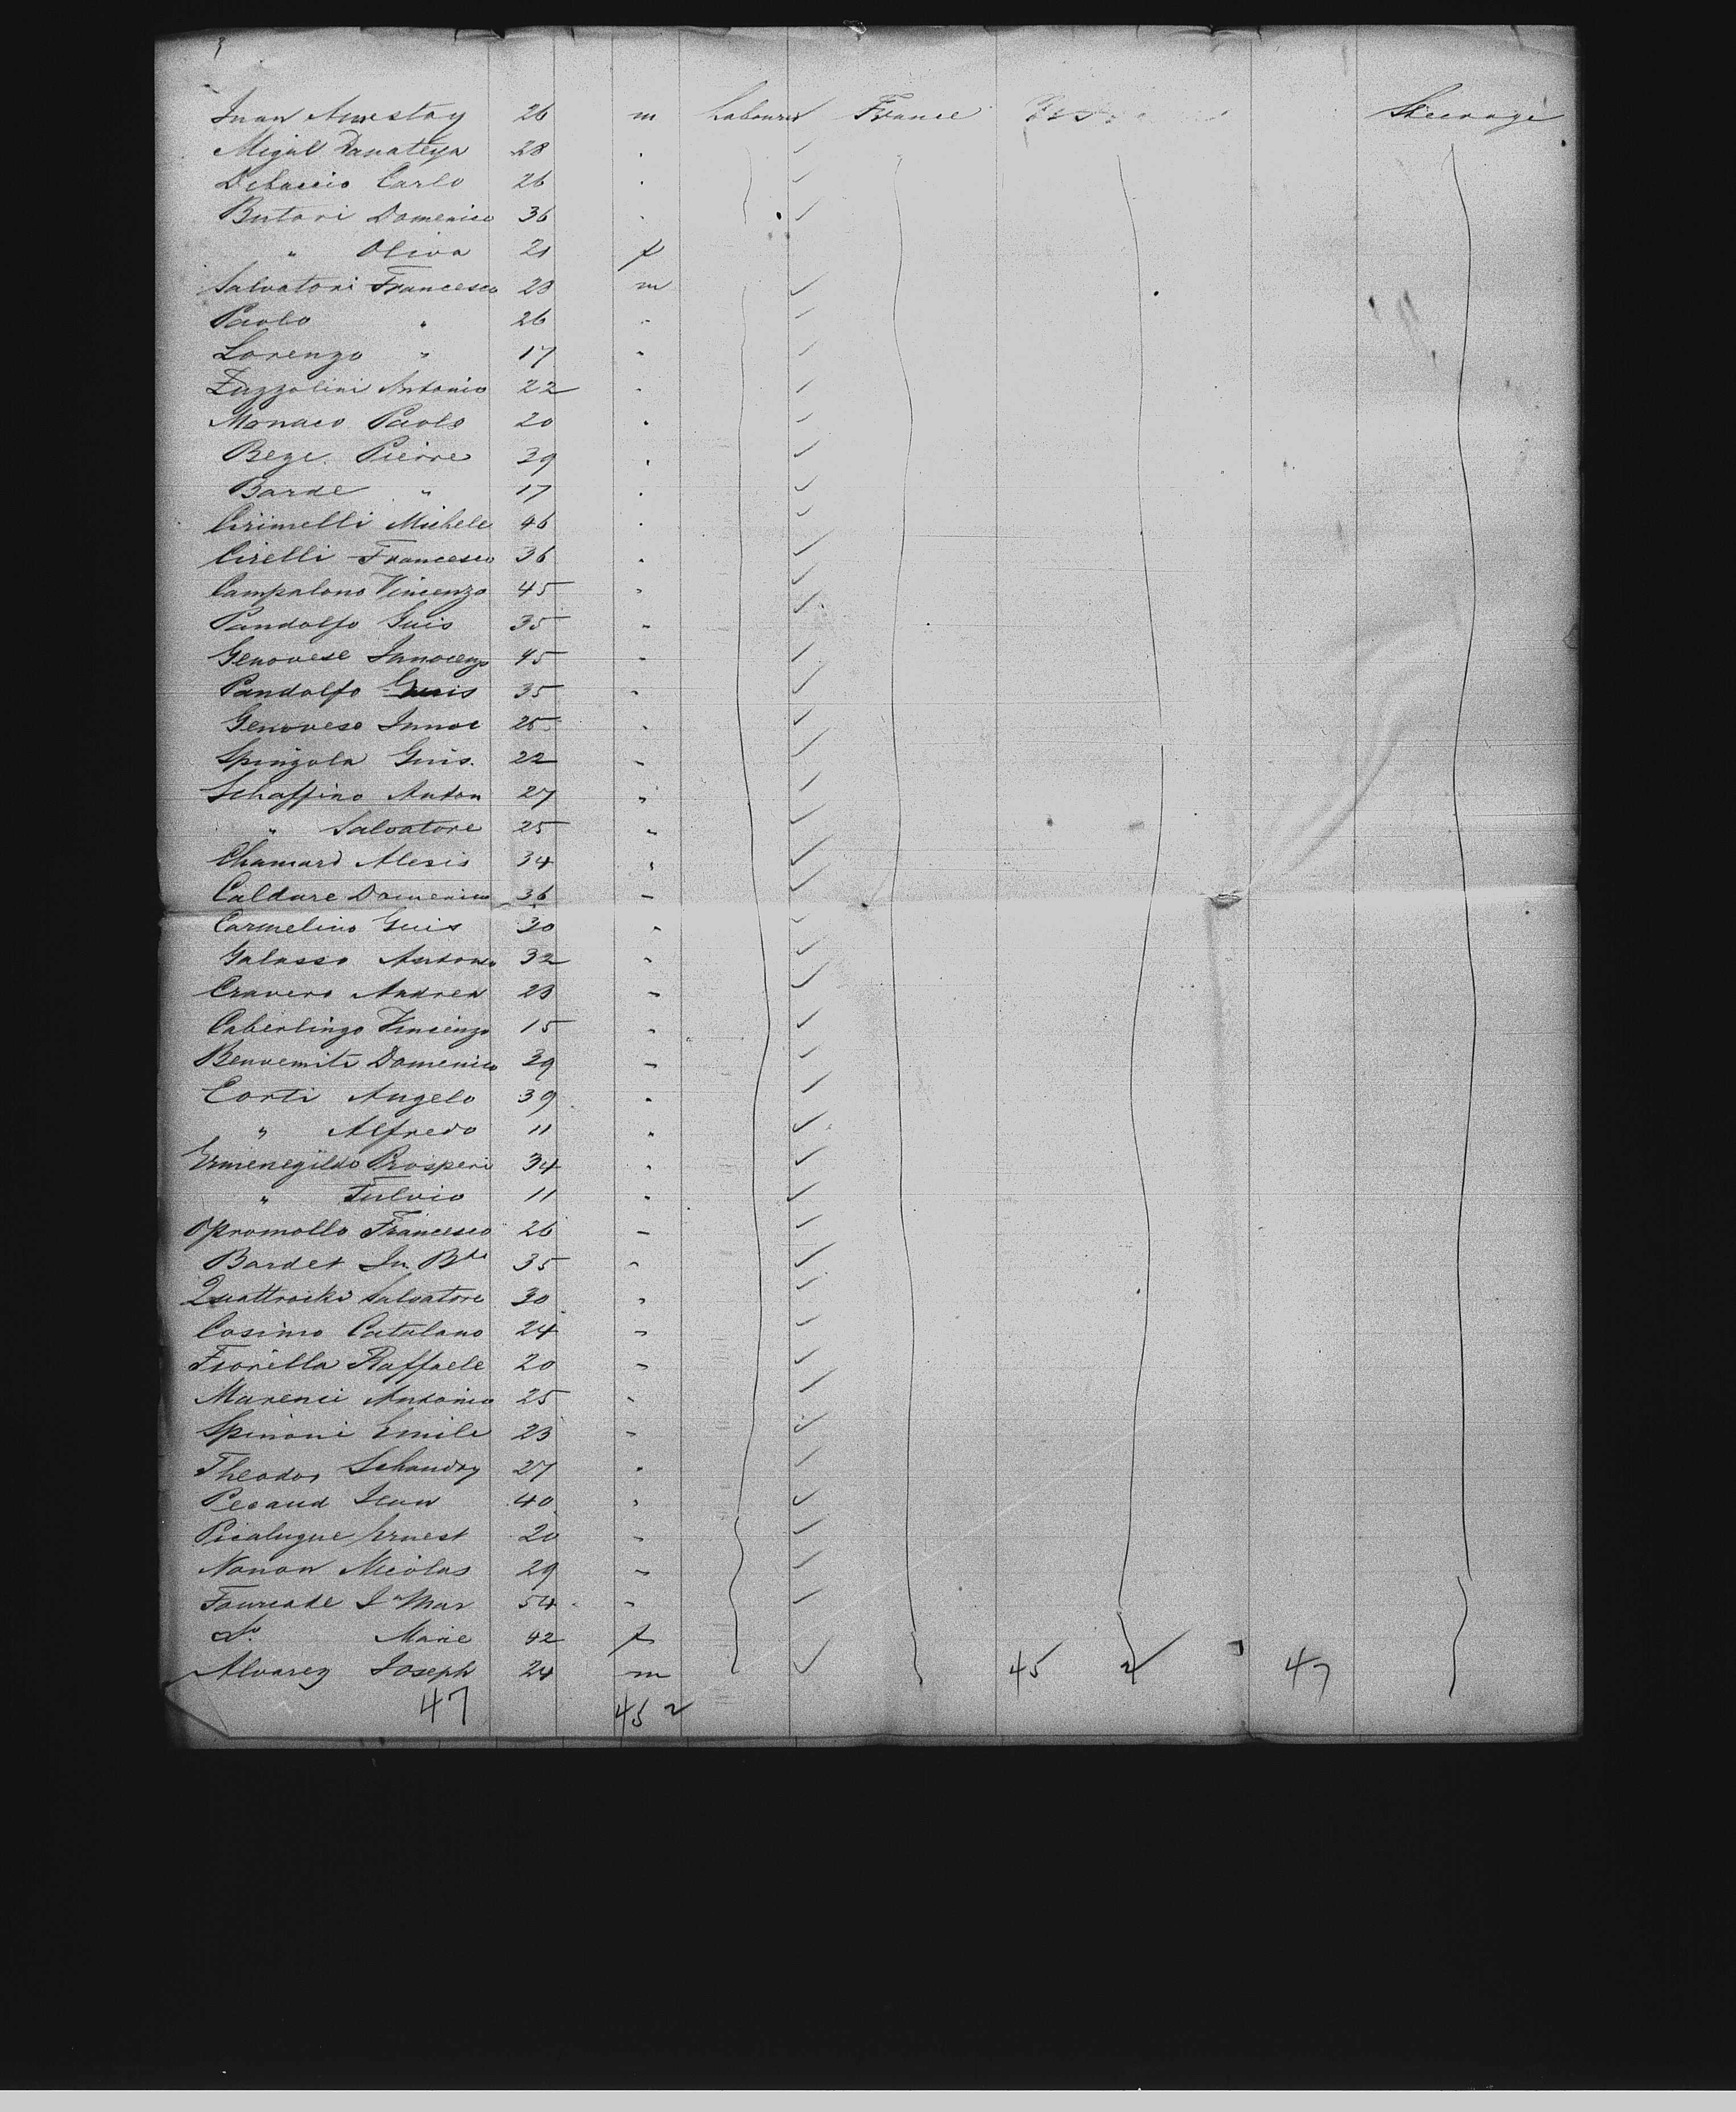 Juan Amestoy 26 m Labourer France Steerage
Migul Danateya 28 "
Debaccio Carlo 26 "
Butori Domenico 36 "
" Oliva 21 f
Salvatori Francesco 28 m
Paolo " 26 "
Lorenzo " 17 "
Zuzzolini Antonio 22 "
Monaco Paolo 20 "
Bege Pierre 39 "
Barde " 17 "
Cirimelli Michele 46 "
Cirelli Francesco 36 "
Campalono Vincenzo 45 "
Pandolfo Guis 35 "
Genovese Innocenzo 45 "
Pandolfo Guis 35 "
Genovese Innoc 25 "
Spingola Guis. 22 "
Schaffino Anton 27 "
" Salvatore 25 "
Chamard Alesis 34 "
Caldare Domenico 36 "
Carmelino Guis 30 "
Galasso Antonio 32 "
Cravero Andrea 28 "
Caberlingo Vincenzo 15 "
Benvemiti Domenico 39 "
Corti Angelo 39 "
" Alfredo 11 "
Ermenegildo Prosperi 34 "
" Fulvio 11 "
Opromollo Francesco 26 "
Bardet Jn Bte 35 "
Quattrocki Salvatore 30 "
Cosimo Catalano 24 "
Fiorilla Raffaele 20 "
Marenci Antonio 25 "
Spinoni Emile 23 "
Theodor Schandry 27 "
Pecaud Jean 40 "
Picalugue Ernest 20 "
Nonon Nicolas 29 "
Fourcade Jn Mar 54 "
do Marie 42 f
Alvarez Joseph 24 m 45 2 47
47 45 2